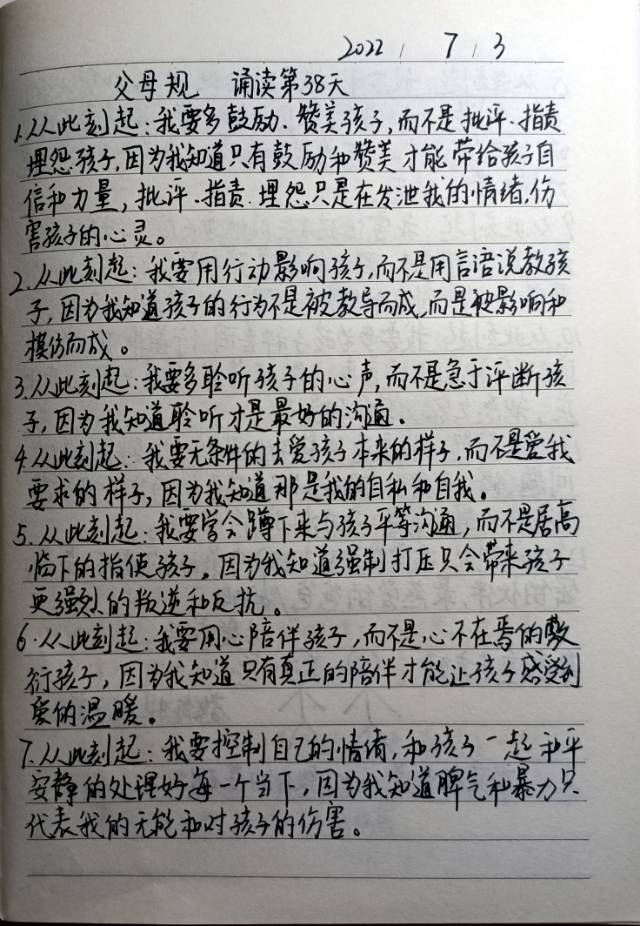 2022 7 3
父母规 诵读第38天
1.从此刻起:我要多鼓励、赞美孩子,而不是批评、指责
埋怨孩子,因为我知道只有鼓励和赞美才能带给孩子自
信和力量,批评、指责、埋怨只是在发泄我的情绪,伤
害孩子的心灵。
2.从此刻起:我要用行动影响孩子,而不是用言语说教孩
子,因为我知道孩子的行为不是被教导而成,而是被影响和
模仿而成。
3.从此刻起:我要多聆听孩子的心声,而不是急于评断孩
子,因为我知道聆听才是最好的沟通。
4.从此刻起:我要无条件的去爱孩子本来的样子,而不是爱我
要求的样子,因为我知道那是我的自私和自我。
5.从此刻起:我要学会蹲下来与孩子平等沟通,而不是居高
临下的指使孩子,因为我知道强制打压只会带来孩子
更强烈的叛逆和反抗。
6.从此刻起:我要用心陪伴孩子,而不是心不在焉的敷
衍孩子,因为我知道只有真正的陪伴才能让孩子感受到
爱的温暖。
7.从此刻起:我要控制自己的情绪,和孩子一起和平
安静的处理好每一个当下,因为我知道脾气和暴力只
代表我的无能和对孩子的伤害。